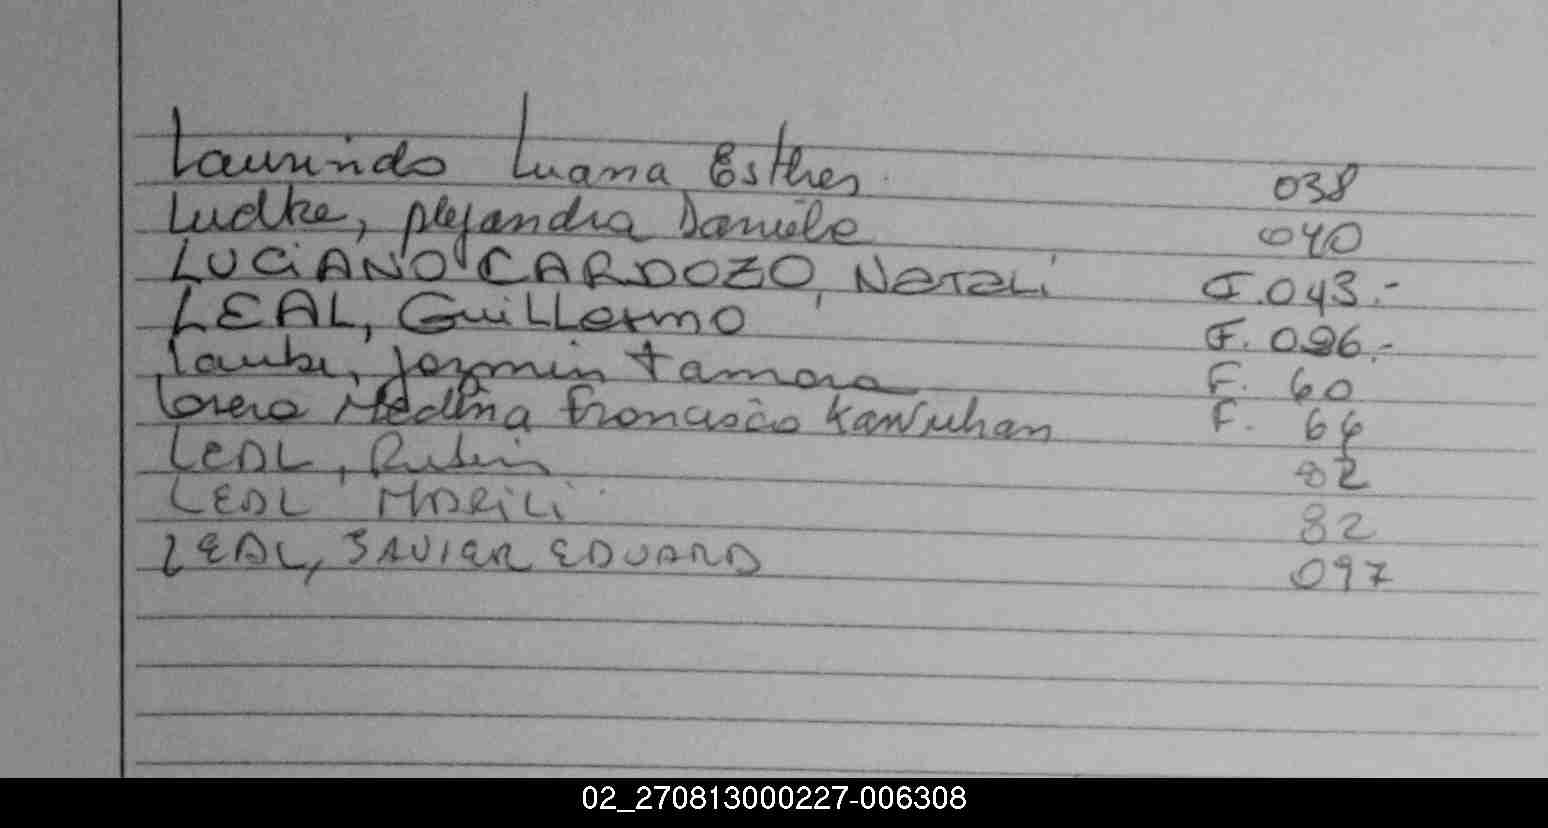 Laurindo Luana Esther 038
Ludke, Alejandra Daniela 040
LUCiANO CARDOZO, Natali F. 043.-
LEAL, GuiLLermo F. 096.-
Laube, Jazmin Tamara F. 60
Medina Francisco F. 64
LEAL, Ruben 82
LEAL MARiLi 82
LEAL, JAVIER EDUARD 097
02_270813000227-006308